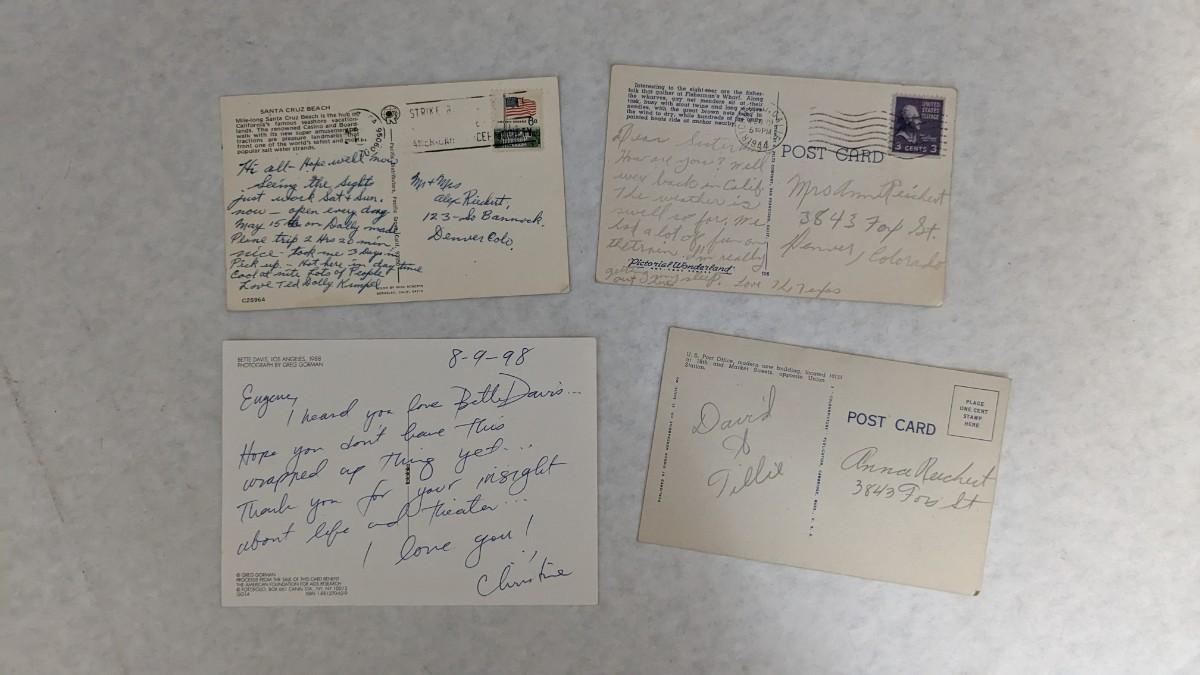 SANTA CRUZ BEACH
Mile-long Santa Cruz Beach is the hub of
California's famous seashore vacation-
lands. The renowned Casino and Board-
walk with its new super amusement
tractions are pleasure landmarks that
front one of the world's safest and
popular salt water strands.
STRIKE
8c
Hi all- Hope well now
Seeing the Sights
just work Sat & Sun.
now - open every day
May 15th on Dolly made
Plane trip 2 Hrs 20 min
nice - took me 3 days in
Pick up - Hot here in day time
Cool at nite Lots of People
Love Ted Dolly Kimpel
C25964
Mr + Mrs
Alex Rickert,
123 - So Bannock.
Denver Colo.
Interesting to the sight-seer are the fisher-
folk that gather at Fisherman's Wharf. Along
the wharves, gay net menders sit at their
task, busy with stout twine and long
needles, with the great brown nets
the wind to dry, while hundreds of
painted boats ride at anchor nearby.
6 PM
1944
UNITED
STATES
POSTAGE
3 CENTS 3
POST CARD
Dear Sister
How are you? Well
were back in Calif
The weather is
swell so far. We
had a lot of fun on
the train. I'm really
getting my sleep
out
Love The Texas
Pictorial Wonderland
Mrs Ann Reichert
3843 Fox St.
Denver, Colorado
BETTE DAVIS, LOS ANGELES, 1988
PHOTOGRAPH BY GREG GORMAN
8-9-98
Eugene,
I heard you love Bette Davis...
Hope you don't have this
wrapped up thing yet...
Thank you for your insight
about life and theater...
I love you!
Christine
© GREG GORMAN
PROCEEDS FROM THE SALE OF THIS CARD BENEFIT
THE AMERICAN FOUNDATION FOR AIDS RESEARCH
© FOTOFOLIO, BOX 661 CANAL STA., NY, NY 10013
U.S. Post Office, modern new building, located
at 18th and Market Streets, opposite Union
Station.
David
&
Tillie
POST CARD
PLACE
ONE CENT
STAMP
HERE
Anna Reichert
3843 Fox St